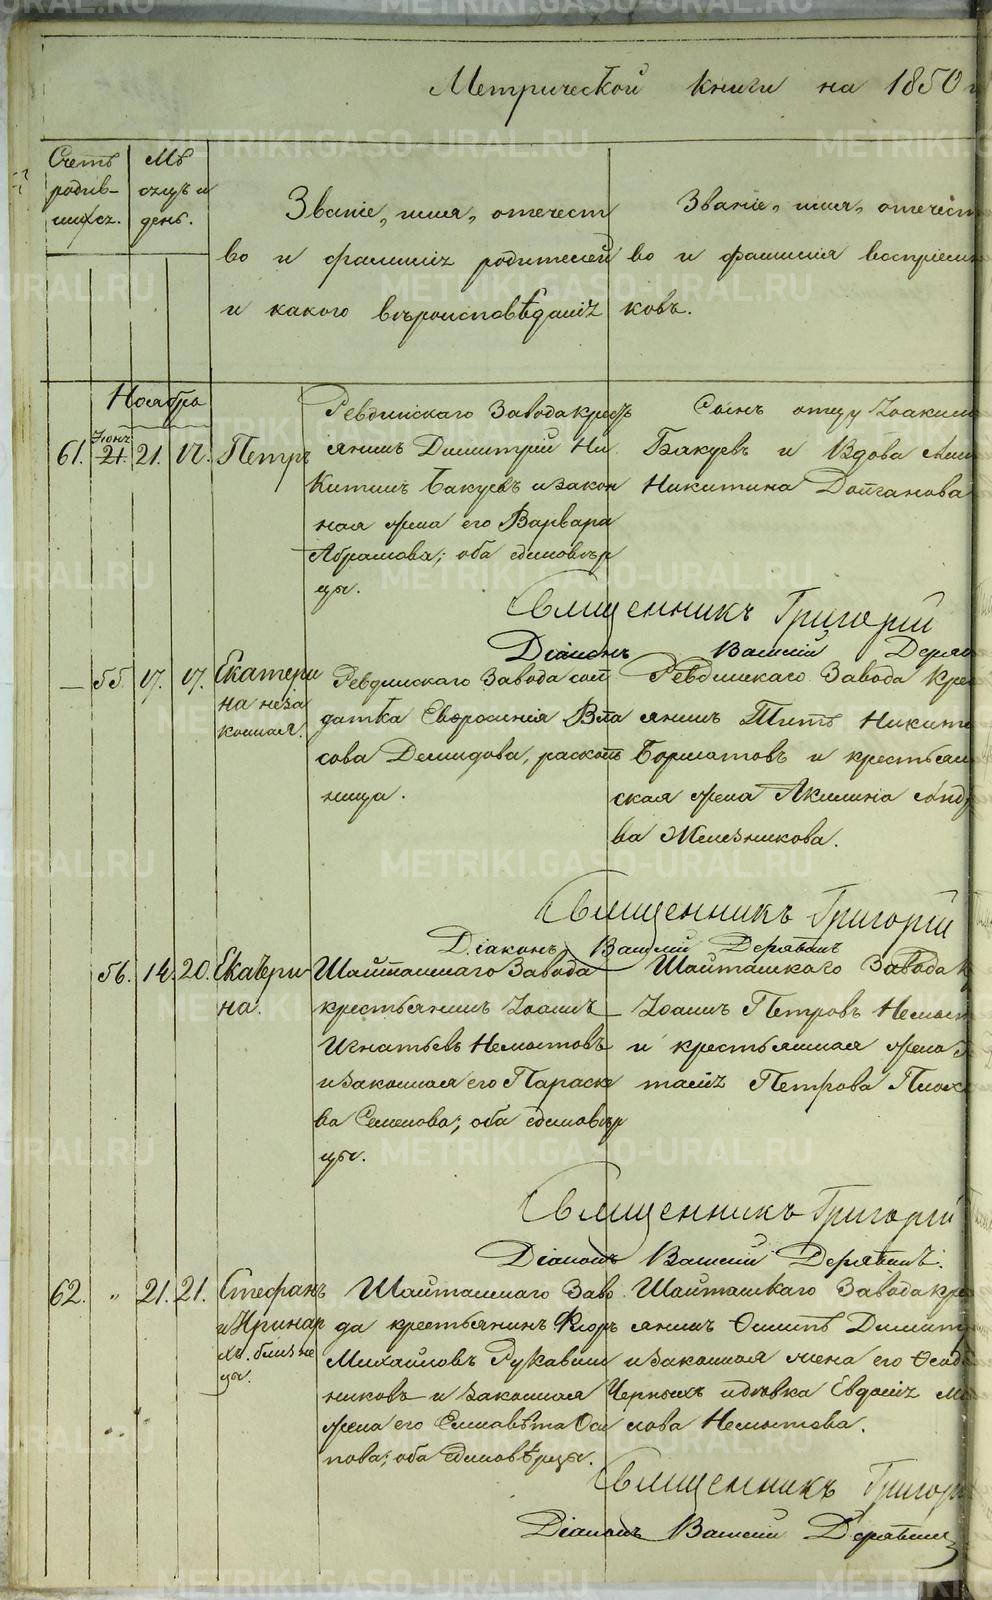 Метрической книги на 1850
Счетъ родив- шихся.
Мѣ сяцъ и день.
Званіе, имя, отечест
во и фамилія родителей
и какого вѣроисповѣданія
Званіе, имя, отечест
во и фамилія воспріем
ковъ.
Ноября
61. Іюнь 21. 21. 17. Петръ
Ревдинскаго Завода кресть
янинъ Димитрій Ни
китинъ Бакуевъ и закон
ная жена его Варвара
Абрамова; оба единовѣр
цы.
Сынъ отцу Іоаким
Бакуевъ и Вдова
Никитина
Священникъ Григорій
Діаконъ Василій Деряб
— 55. 17. 17. Екатери
на неза
конная.
Ревдинскаго Завода сол
датка Евфросинія Вла
сова Демидова, расколь
ница.
Ревдинскаго Завода крес
янинъ Титъ Никит
Борматовъ и крестьян
ская жена Акилина Андр
ва Железникова.
Священникъ Григорій
Діаконъ Василій Дерябинъ
56. 14. 20. Екатери
на.
Шайтанскаго Завода
крестьянинъ Іоаннъ
Игнатьевъ Немытовъ
и законная его Параске
ва Семенова; оба единовѣр
цы.
Шайтанскаго Завода к
Іоаннъ Петровъ Немыт
и крестьянская жена
талія Петрова Плох
Священникъ Григорій
Діаконъ Василій Дерябинъ.
62. " 21. 21. Стефанъ
и Иринар
хъ. близне
цы.
Шайтанскаго Заво
да крестьянинъ Флоръ
Михайловъ Рукавиш
никовъ и законная
жена его Елисавѣта Оси
пова; оба единовѣрцы.
Шайтанскаго Завода кре
янинъ Осипъ Димитр
и законная жена его
Черныхъ и дѣвка Евдокія
лова Немытова.
Священникъ Григор
Діаконъ Василій Дерябин
METRIKI.GASO-URAL.RU